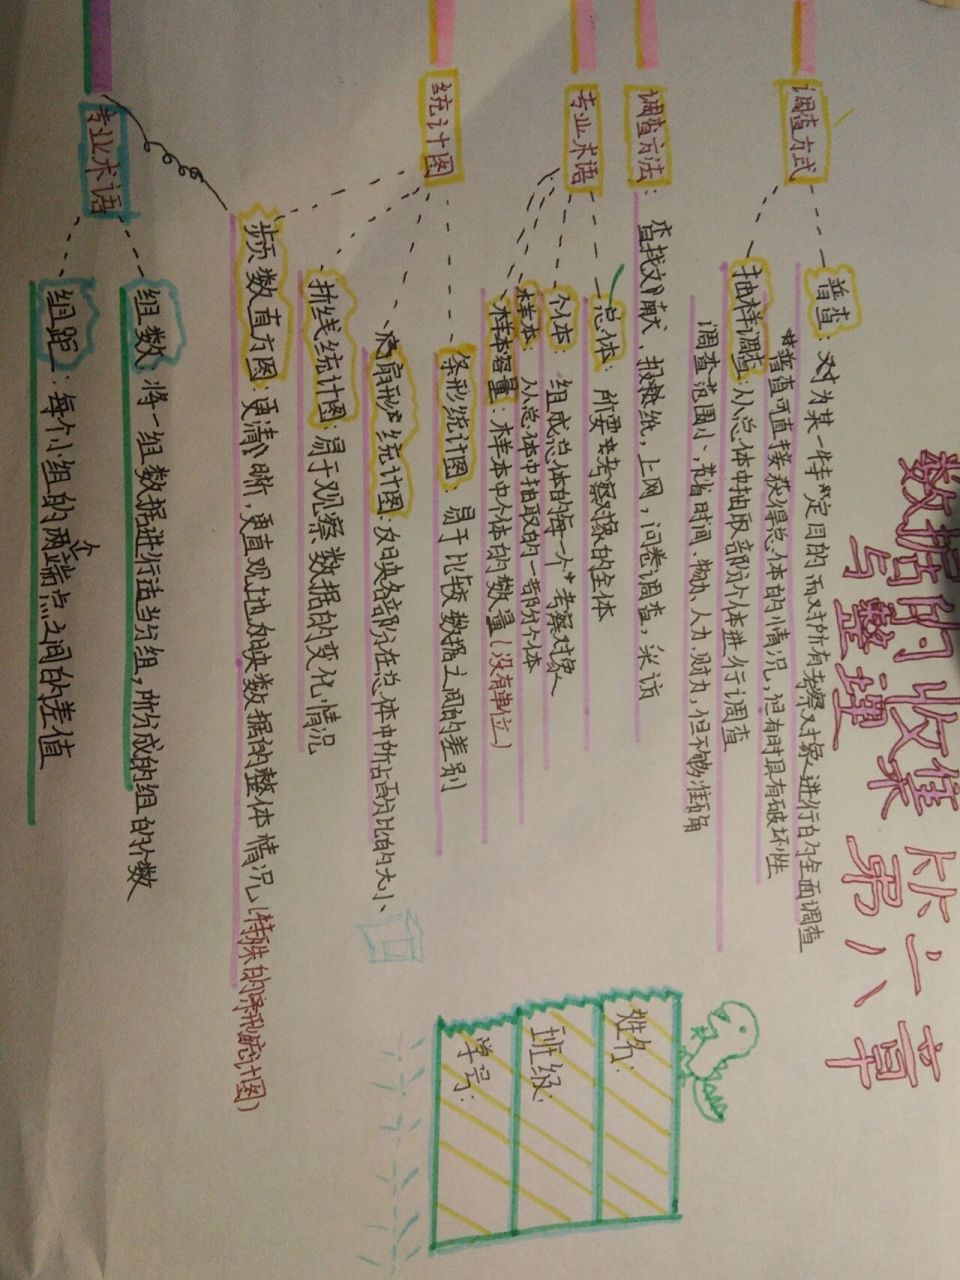 数据的收集
与整理
第六章
调查方式
普查：对为某一特定目的而对所有考察对象进行的全面调查
*普查可直接获得总体的情况，但有时具有破坏性
抽样调查：从总体中抽取部分个体进行调查
调查范围小，节省时间、物力、人力、财力，但不够准确
调查方法：查找文献，报纸，上网，问卷调查，采访
专业术语
总体：所要考察对象的全体
个体：组成总体的每一个考察对象
样本：从总体中抽取的一部分个体
样本容量：样本中个体的数量(没有单位)
统计图
条形统计图：易于比较数据之间的差别
扇形统计图：反映各部分在总体中所占百分比的大小
折线统计图：易于观察数据的变化情况
频数直方图：更清晰，更直观地反映数据的整体情况(特殊的条形统计图)
专业术语
组数：将一组数据进行适当分组，所分成的组的个数
组距：每个小组的两个端点之间的差值
姓名：
班级：
学号：